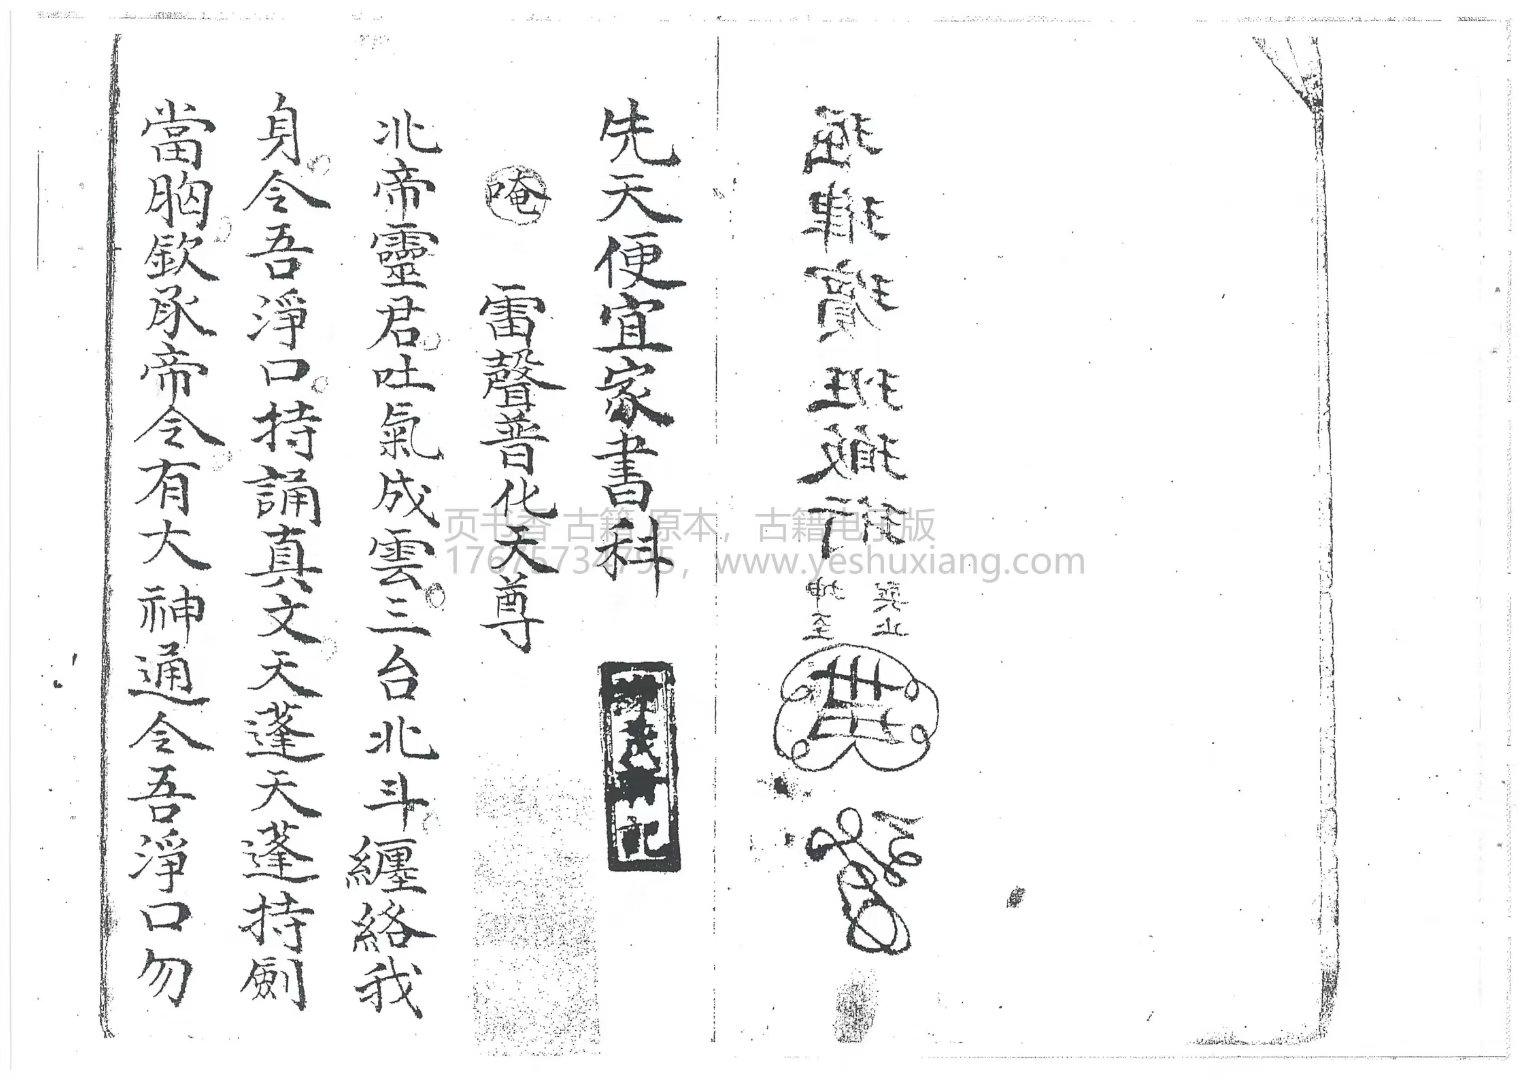 先天便宜家書科
唵 雷聲普化天尊
北帝靈君吐氣成雲三台北斗纏絡我
身令吾淨口持誦真文天蓬天蓬持劍
當胸欽承帝令有大神通令吾淨口勿
記
页书香 古籍 原本，古籍电子版
17675734795，www.yeshuxiang.com